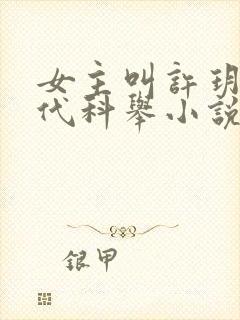 女主叫許玥
代科舉小說
銀甲